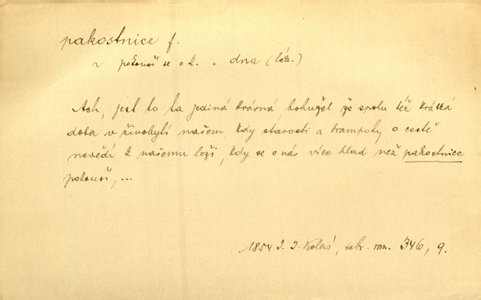 pakostnice f.
v pokouš se o k. . dna (lék.)
Ach, jest to ta jediná krásná bohužel ze spolu též krátká
doba v živobytí našem, kdy starosti a trampoty o cestě
nevědí k našemu loži, kdy se o nás více hlad než pakostnice
pokouší, ...
1854 J. J. Kolár, sebr. 346, 9.